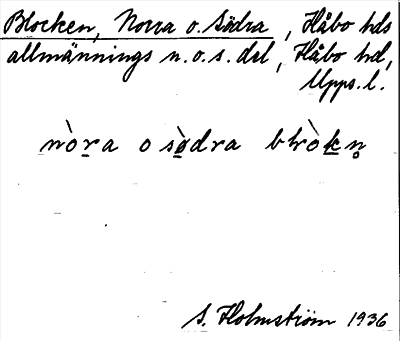 Blocken, Norra o. Södra, Håbo hds
allmännings n. o. s. del, Håbo hd,
Upps. l.
nòra o sødra blròkn̥
S. Holmström 1936